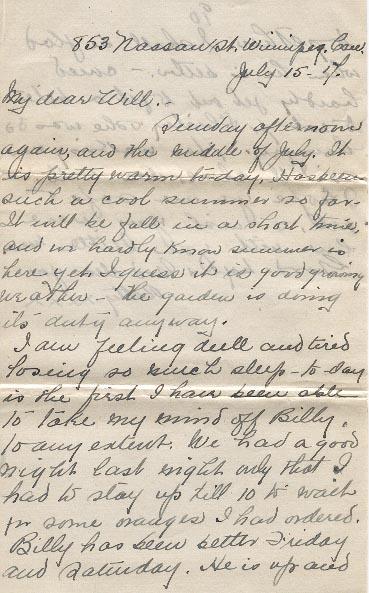 853 Nassau St. Winnipeg, Can.
July 15 - 17.
My dear Will.
Sunday afternoon
again, and the middle of July. It
is pretty warm to-day. Has been
such a cool summer so far.
It will be fall in a short time,
and we hardly know summer is
here yet. I guess it is good growing
weather - the garden is doing
its duty anyway.
I am feeling dull and tired
losing so much sleep - to-day
is the first I have been able
to take my mind off Billy,
to any extent. We had a good
night last night only that I
had to stay up till 10 to wait
for some oranges I had ordered.
Billy has been better Friday
and Saturday. He is up and